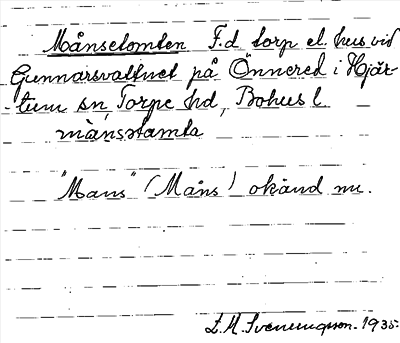 Månsetomten F.d torp el. hus vid
Gunnarsvattnet på Önnered i Hjär-
tum sn, Torpe hd, Bohus l.
månsstamta
"Mans" (Måns) okänd nu.
L.M. Svenungsson. 1935.